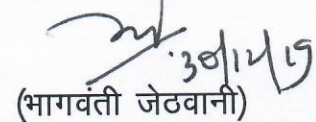 30/12/19
(भागवंती जेठवानी)